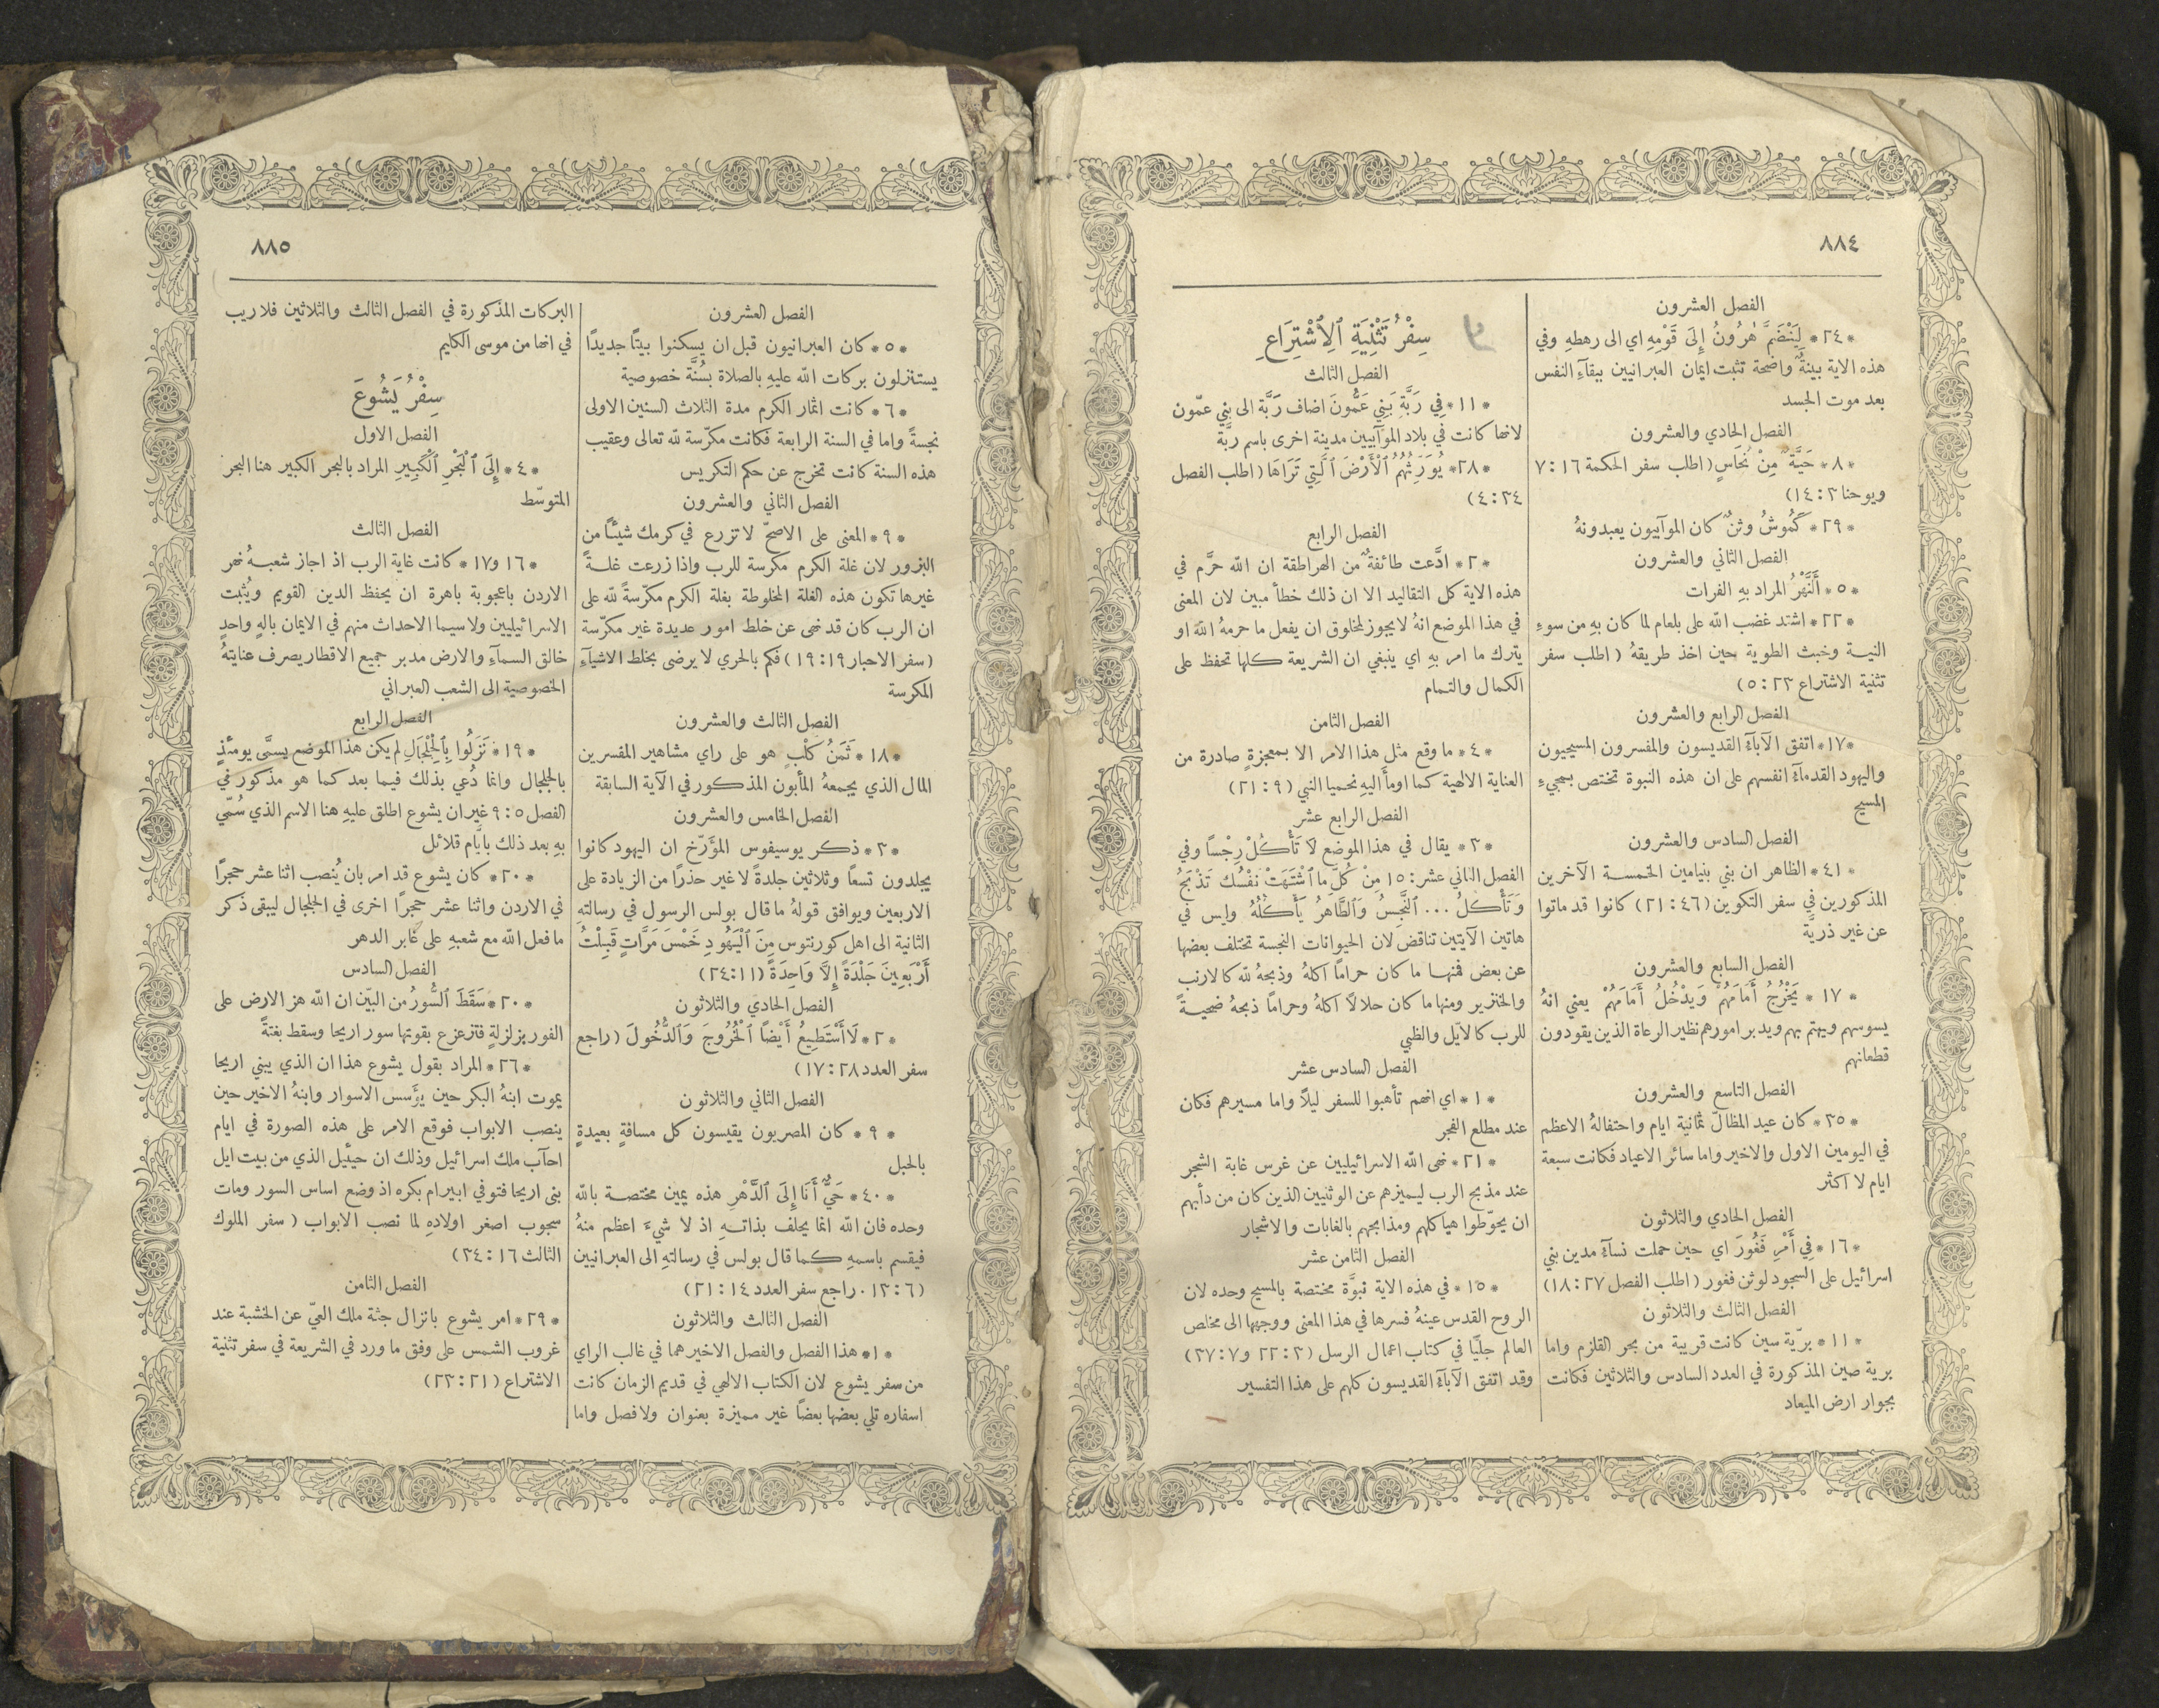 ٨٨٤
الفصل العشرون
*٢٤* لِيَنْضَمَّ هٰرُونُ إِلَى قَوْمِهِ اي الى رهطهِ وفي
هذه الاية بينةٌ واضحة تثبت ايمان العبرانيين ببقآءِ النفس
بعد موت الجسد
الفصل الحادي والعشرون
*٨* حَيَّةً مِنْ نُحَاسٍ (اطلب سفر الحكمة ١٦ : ٧
ويوحنا ٣ : ١٤)
*٢٩* كَمُوشُ وثنٌ كان الموآبيون يعبدونهُ
الفصل الثاني والعشرون
*٥* أَلنَّهْرُ المراد بهِ الفرات
*٢٢* اشتد غضب الله على بلعام لما كان بهِ من سوءِ
النيـة وخبث الطوية حين اخذ طريقهُ (اطلب سفر
تثنية الاشتراع ٢٣ : ٥)
الفصل الرابع والعشرون
*١٧* اتفق الآبآءُ القديسون والمفسرون المسيحيون
واليهود القدمآءُ انفسهم على ان هذه النبوة تختص بمجيءِ
المسيح
الفصل السادس والعشرون
*٤١* الظاهر ان بني بنيامين الخمسـة الآخرين
المذكورين في سفر التكوين (٤٦ : ٢١) كانوا قد ماتوا
عن غير ذريَّة
الفصل السابع والعشرون
*١٧* يَخْرُجُ أَمَامَهُمْ وَيَدْخُلُ أَمَامَهُمْ يعني انهُ
يسوسهم ويهتم بهم ويدبر امورهم نظير الرعاة الذين يقودون
قطعانهم
الفصل التاسع والعشرون
*٣٥* كان عيد المظالّ ثمانية ايام واحتفالهُ الاعظم
في اليومين الاول والاخير واما سائر الاعياد فكانت سبعة
ايام لا اكثر
الفصل الحادي والثلاثون
*١٦* فِي أَمْرِ فَغُورَ اي حين حملت نسآءُ مدين بني
اسرائيل على السجود لوثن فغور (اطلب الفصل ٢٧ : ١٨)
الفصل الثالث والثلاثون
*١١* برّية سين كانت قريبة من بحر القلزم واما
برية صين المذكورة في العدد السادس والثلاثين فكانت
بجوار ارض الميعاد
سِفْرُ تَثْنِيَةِ ٱلِٱشْتِرَاعِ
الفصل الثالث
*١١* فِي رَبَّةِ بَنِي عَمُّونَ اضاف رَبَّة الى بني عمّون
لانها كانت في بلاد الموآبيين مدينة اخرى باسم ربَّة
*٢٨* يُوَرِّثُهُمُ ٱلْأَرْضَ ٱلَّتِي تَرَاهَا (اطلب الفصل
٣٤ : ٤)
الفصل الرابع
*٢* ادَّعت طائفةٌ من الهراطقة ان الله حرَّم في
هذه الاية كل التقاليد الا ان ذلك خطأ مبين لان المعنى
في هذا الموضع انهُ لا يجوز لمخلوق ان يفعل ما حرمهُ الله او
يترك ما امر بهِ اي ينبغي ان الشريعة كلها تحفظ على
الكمال والتمام
الفصل الثامن
*٤* ما وقع مثل هذا الامر الا بمعجزةٍ صادرة من
العناية الالهية كما اومأ اليهِ نحميا النبي (٩ : ٢١)
الفصل الرابع عشر
*٣* يقال في هذا الموضع لَا تَأْكُلْ رِجْسًا وفي
الفصل الثاني عشر: ١٥ مِنْ كُلِّ مَا ٱشْتَهَتْ نَفْسُكَ تَذْبَحُ
وَتَأْكُلُ ... اَلنَّجِسُ وَٱلطَّاهِرُ يَأْكُلُهُ وليس في
هاتين الآيتين تناقض لان الحيوانات النجسة تختلف بعضها
عن بعض فمنها ما كان حرامًا اكلهُ وذبحهُ لله كالارنب
والخنزير ومنها ما كان حلالًا اكلهُ وحرامًا ذبحهُ ضحيـةً
للرب كالأيل والظبي
الفصل السادس عشر
*١* اي انهم تأهبوا للسفر ليلًا واما مسيرهم فكان
عند مطلع الفجر
*٢١* نهى الله الاسرائيليين عن غرس غابة الشجر
عند مذبح الرب ليميزهم عن الوثنيين الذين كان من دأبهم
ان يحوّطوا هياكلهم ومذابحهم بالغابات والاشجار
الفصل الثامن عشر
*١٥* في هذه الاية نبوَّة مختصة بالمسيح وحده لان
الروح القدس عينهُ فسرها في هذا المعنى ووجهها الى مخلص
العالم جليًا في كتاب اعمال الرسل (٣ : ٢٢ و٧ : ٣٧)
وقد اتفق الآبآءُ القديسون كلهم على هذا التفسير
٨٨٥
الفصل العشرون
*٥* كان العبرانيون قبل ان يسكنوا بيتًا جديدًا
يستنزلون بركات الله عليهِ بالصلاة بسُنَّة خصوصية
*٦* كانت اثمار الكرم مدة الثلاث السنين الاولى
نجسةً واما في السنة الرابعة فكانت مكرّسة لله تعالى وعقيب
هذه السنة كانت تخرج عن حكم التكريس
الفصل الثاني والعشرون
*٩* المعنى على الاصحّ لا تزرع في كرمك شيئًا من
البزور لان غلة الكرم مكرسة للرب واذا زرعت غلـةً
غيرها تكون هذه الغلة المخلوطة بغلة الكرم مكرّسةً لله على
ان الرب كان قد نهى عن خلط امور عديدة غير مكرّسة
(سفر الاحبار ١٩ : ١٩) فكم بالحري لا يرضى بخلط الاشيآءِ
المكرسة
الفصل الثالث والعشرون
*١٨* ثَمَنُ كَلْبٍ هو على راي مشاهير المفسرين
المال الذي يجمعهُ المأبون المذكور في الآية السابقة
الفصل الخامس والعشرون
*٣* ذكر يوسيفوس المؤَرّخ ان اليهود كانوا
يجلدون تسعًا وثلاثين جلدةً لا غير حذرًا من الزيادة على
الاربعين ويوافق قولهُ ما قال بولس الرسول في رسالته
الثانية الى اهل كورنتوس مِنَ ٱلْيَهُودِ خَمْسَ مَرَّاتٍ قَبِلْتُ
أَرْبَعِينَ جَلْدَةً إِلَّا وَاحِدَةً (١١ : ٢٤)
الفصل الحادي والثلاثون
*٢* لَا أَسْتَطِيعُ أَيْضًا ٱلْخُرُوجَ وَٱلدُّخُولَ (راجع
سفر العدد ٢٨ : ١٧)
الفصل الثاني والثلاثون
*٩* كان المصريون يقيسون كل مسافةٍ بعيدةٍ
بالحبل
*٤٠* حَيٌّ أَنَا إِلَى ٱلدَّهْرِ هذه يمين مختصـة بالله
وحده فان الله انما يحلف بذاتـهِ اذ لا شيءَ اعظم منهُ
فيقسم باسمهِ كما قال بولس في رسالتهِ الى العبرانيين
(٦ : ١٣. راجع سفر العدد ١٤ : ٢١)
الفصل الثالث والثلاثون
*١* هذا الفصل والفصل الاخير هما في غالب الراي
من سفر يشوع لان الكتاب الالهي في قديم الزمان كانت
اسفاره تلي بعضها بعضًا غير مميزة بعنوان ولا فصل واما
البركات المذكورة في الفصل الثالث والثلاثين فلا ريب
في انها من موسى الكليم
سِفْرُ يَشُوعَ
الفصل الاول
*٤* إِلَى ٱلْبَحْرِ ٱلْكَبِيرِ المراد بالبحر الكبير هنا البحر
المتوسّط
الفصل الثالث
*١٦ و١٧* كانت غاية الرب اذ اجاز شعبـهُ نهر
الاردن باعجوبة باهرة ان يحفظ الدين القويم ويُثبت
الاسرائيليين ولا سيما الاحداث منهم في الايمان بالهٍ واحدٍ
خالق السمآءِ والارض مدبر جميع الاقطار يصرف عنايتهُ
الخصوصية الى الشعب العبراني
الفصل الرابع
*١٩* نَزَلُوا بِٱلْجِلْجَالِ لم يكن هذا الموضع يسمَّى يومئذٍ
بالجلجال وانما دُعي بذلك فيما بعد كما هو مذكور في
الفصل ٥ : ٩ غير ان يشوع اطلق عليهِ هنا الاسم الذي سُمّي
بهِ بعد ذلك بايَّام قلائل
*٢٠* كان يشوع قد امر بان يُنصب اثنا عشر حجرًا
في الاردن واثنا عشر حجرًا اخرى في الجلجال ليبقى ذكر
ما فعل الله مع شعبهِ على غابر الدهر
الفصل السادس
*٢٠* سَقَطَ ٱلسُّورُ من البيّن ان الله هز الارض على
الفور بزلزلةٍ فتزعزع بقوتها سور اريحا وسقط بغتةً
*٢٦* المراد بقول يشوع هذا ان الذي يبني اريحا
يموت ابنهُ البكر حين يؤَسس الاسوار وابنهُ الاخير حين
ينصب الابواب فوقع الامر على هذه الصورة في ايام
احآب ملك اسرائيل وذلك ان حيئيل الذي من بيت ايل
بنى اريحا فتوفي ابيرام بكره اذ وضع اساس السور ومات
سجوب اصغر اولادهِ لما نصب الابواب (سفر الملوك
الثالث ١٦ : ٣٤)
الفصل الثامن
*٢٩* امر يشوع بانزال جثة ملك العيّ عن الخشبة عند
غروب الشمس على وفق ما ورد في الشريعة في سفر تثنية
الاشتراع (٢١ : ٢٣)